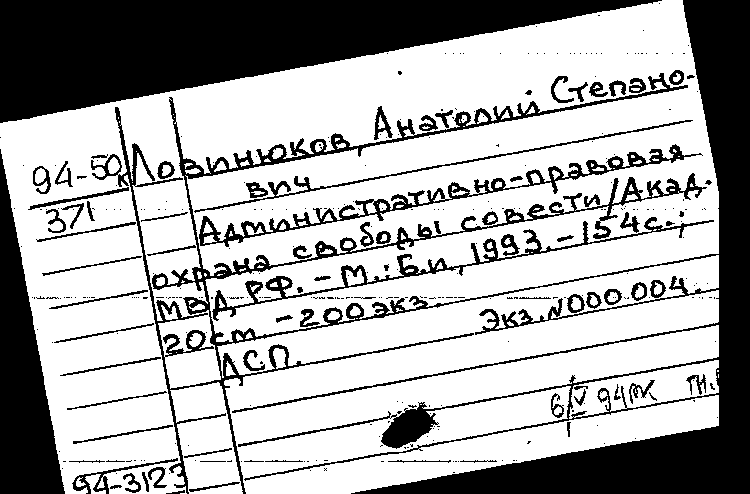 94-50к Ловинюков, Анатолий Степано-
371 вич.
Административно-правовая
охрана свободы совести/Акад.
МВД РФ. - М.: Б.и., 1993. - 154с.;
20см. - 200экз.
Экз.N000004.
ДСП.
6/V 94
94-3123